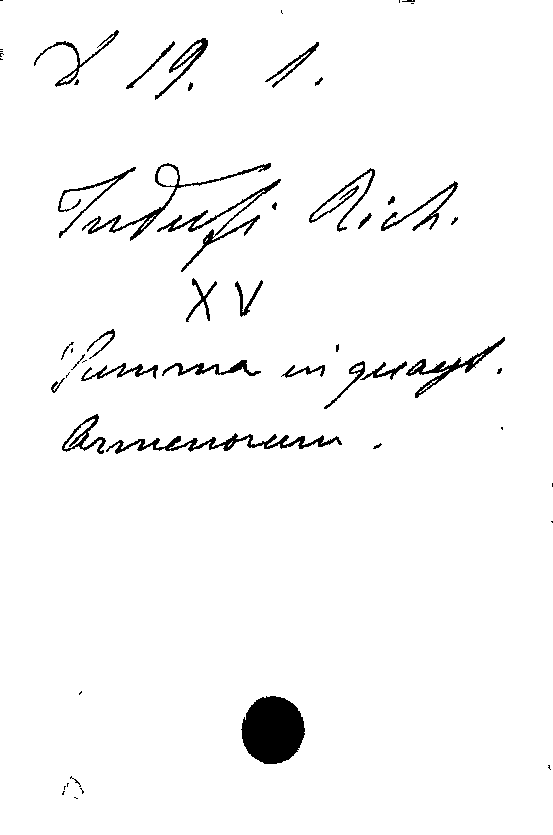 D. 19. 1.
Rich.
XV
Summa in quaest.
Armenorum.